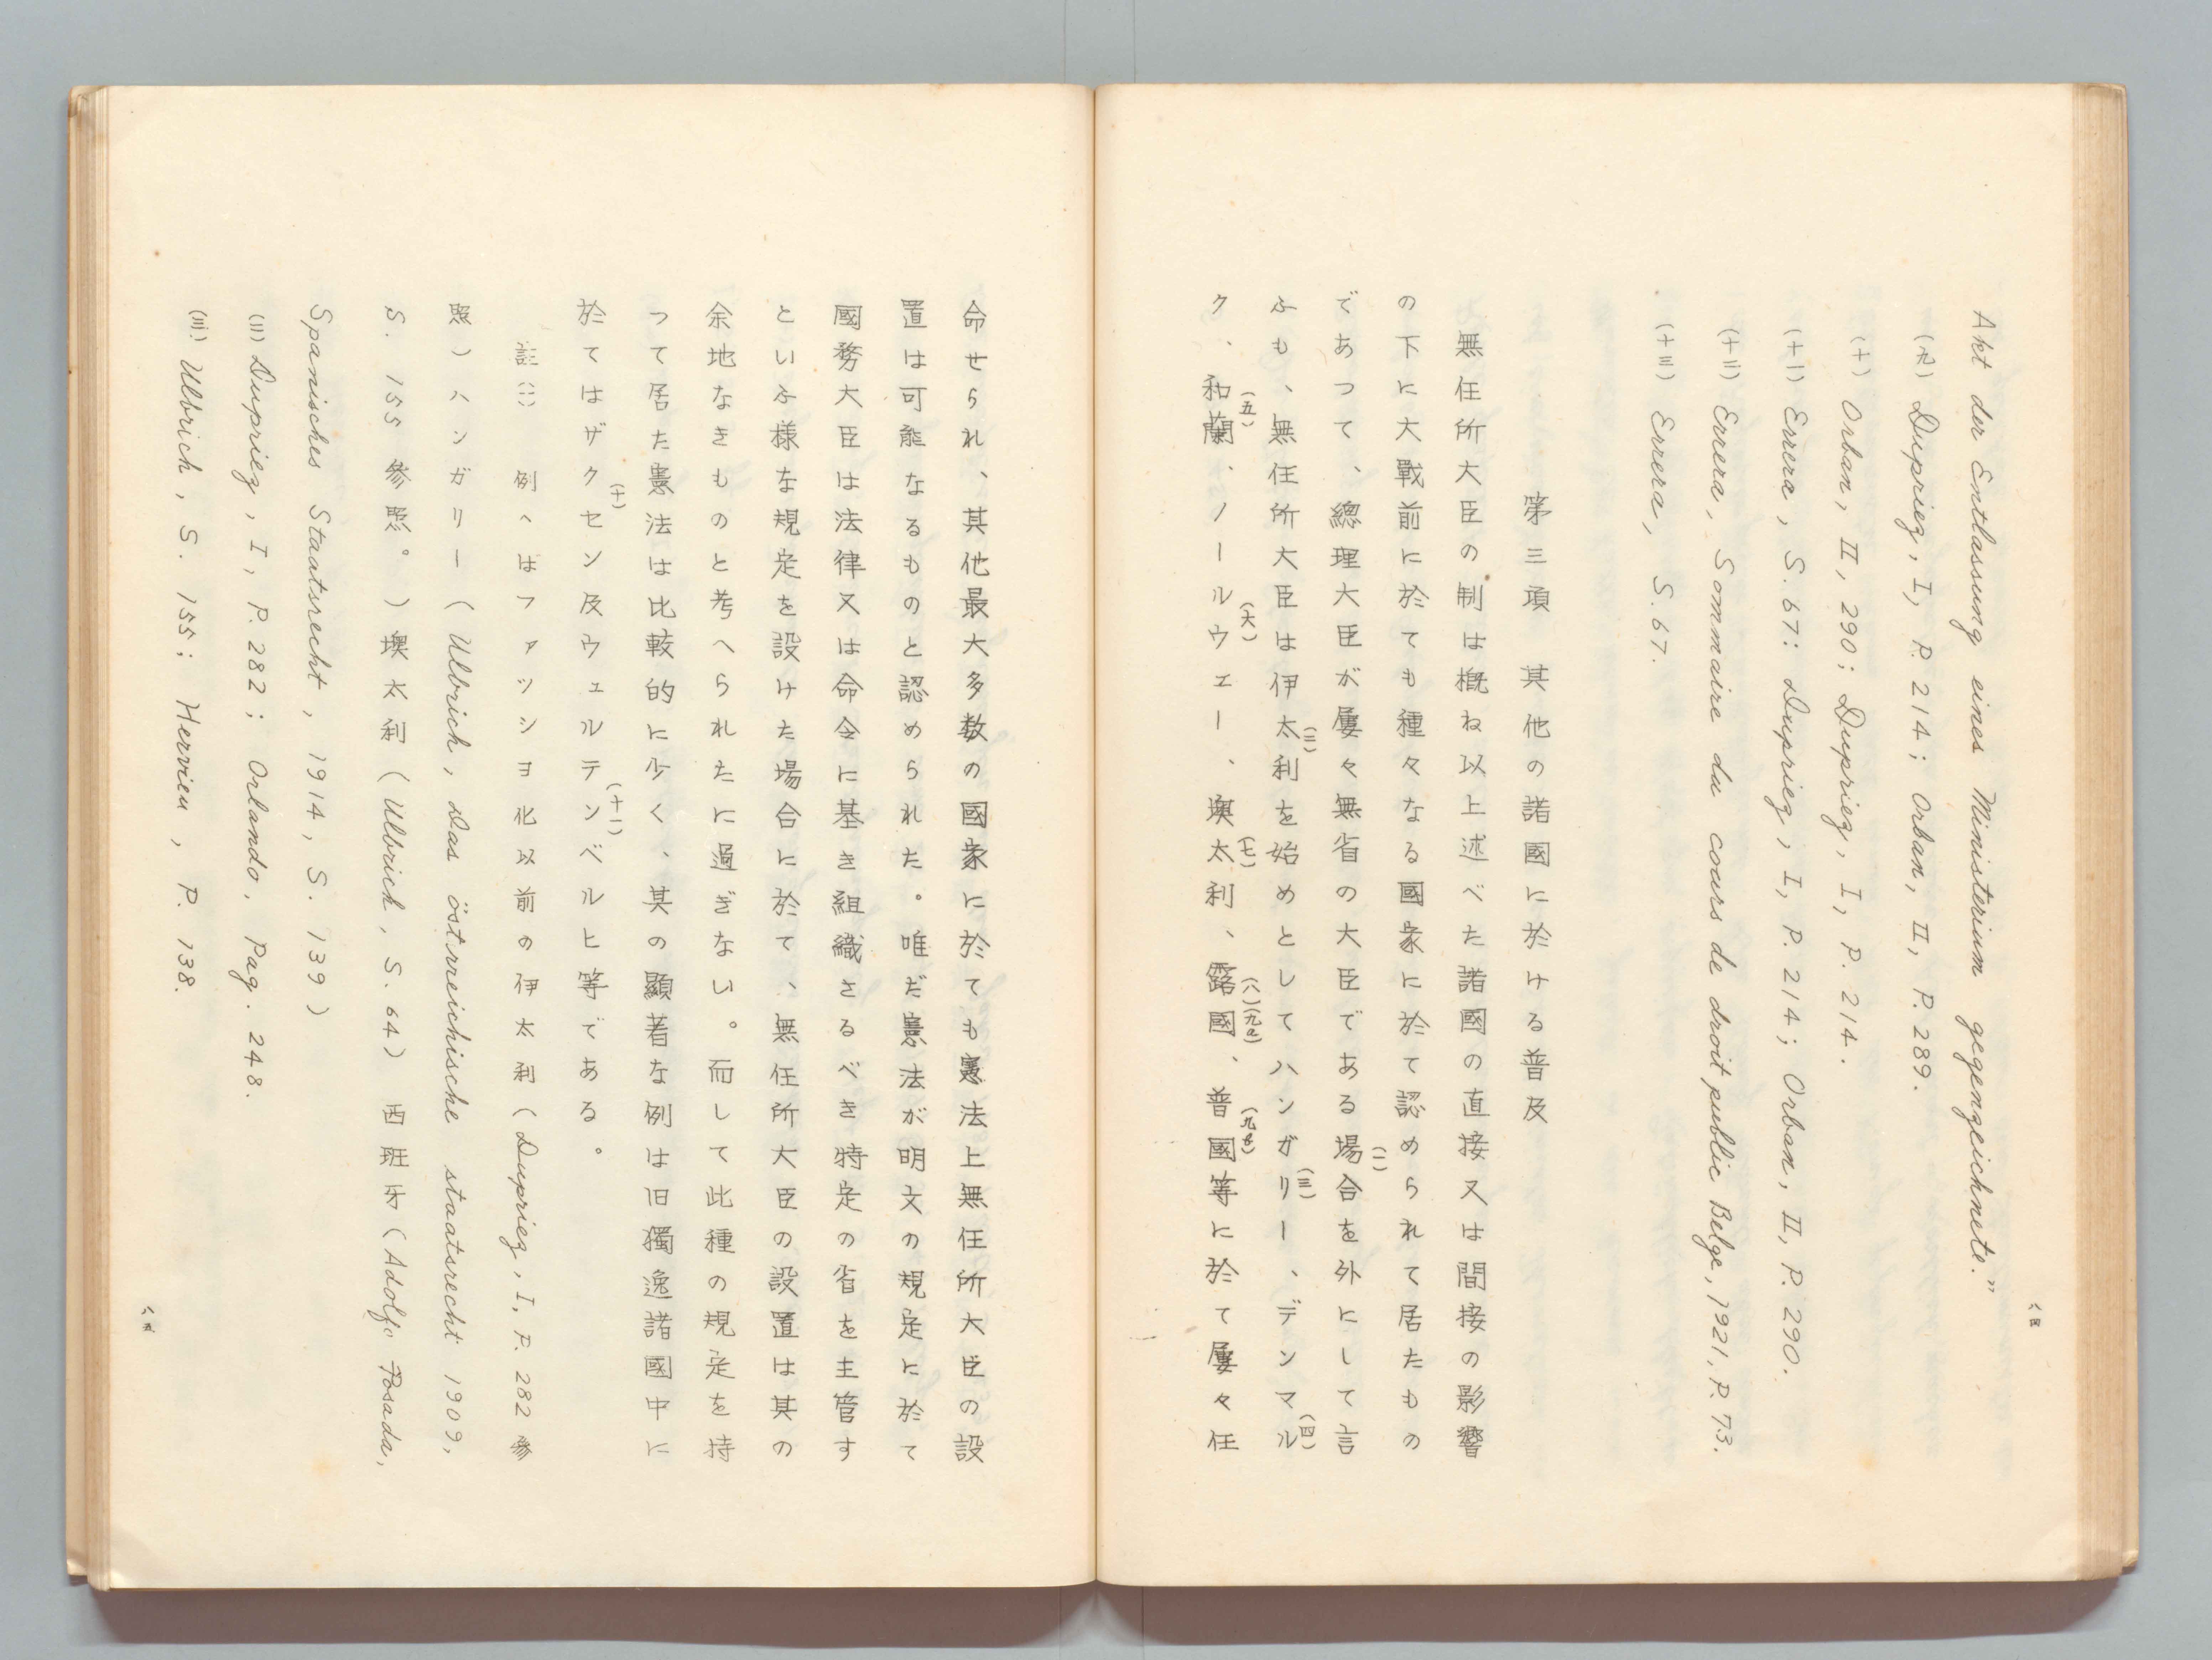 八四
Akt der Entlassung eines Ministerium gegengeichnete."
(九) Dupriez, I, P. 214; Orban, II, P. 289.
(十) Orban, II, 290; Dupriez, I, P. 214.
(十一) Errera, S. 67: Dupriez, I, P. 214; Orban, II, P. 290.
(十二) Errera, Sommaire du cours de droit public Belge, 1921, P. 73.
(十三) Errera, S. 67.
第三項 其他の諸國に於ける普及
無任所大臣の制は概ね以上述べた諸國の直接又は間接の影響
の下に大戰前に於ても種々なる國家に於て認められて居たもの
であつて、總理大臣が屢々無省の大臣である場合(一)を外にして言
ふも、無任所大臣は伊太利(二)を始めとしてハンガリー(三)、デンマル(四)
ク、和蘭(五)、ノールウエー(六)、墺太利(七)、露國(八)(九a)、普國(九b)等に於て屢々任
命せられ、其他最大多数の國家に於ても憲法上無任所大臣の設
置は可能なるものと認められた。唯だ憲法が明文の規定に於て
國務大臣は法律又は命令に基き組織さるべき特定の省を主管す
といふ様な規定を設けた場合に於て、無任所大臣の設置は其の
余地なきものと考へられたに過ぎない。而して此種の規定を持
つて居た憲法は比較的に少く、其の顯著な例は旧獨逸諸國中に
於てはザクセン(十)及ウェルテンベルヒ(十一)等である。
註(一) 例へはファツシヨ化以前の伊太利(Dupriez, I, P. 282 參
照)ハンガリー(Ulbrich, Das östrreichische staatsrecht 1909,
S. 155 參照。)墺太利(Ulbrich, S. 64) 西班牙(Adolfo Posada,
Spanisches Staatsrecht, 1914, S. 139)
(二) Dupriez, I, P. 282; Orlando, Pag. 248.
(三) Ulbrich, S. 155; Hervieu, P. 138.
八五